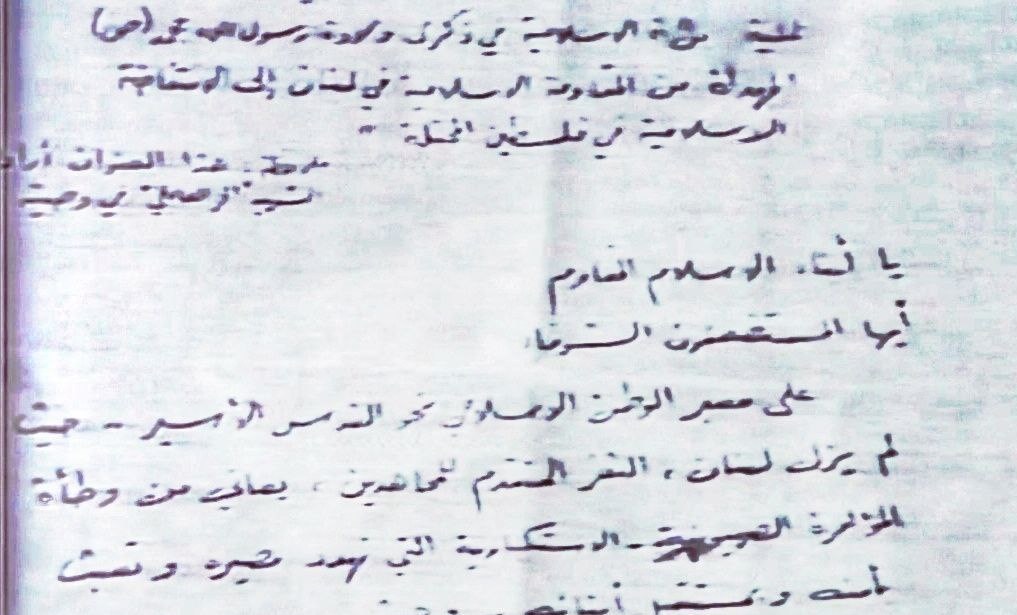 عملية الاسلامية في ذكرى ولادة رسول الله محمد (ص)
المهداة من المقاومة الاسلامية في لبنان إلى الانتفاضة
الاسلامية في فلسطين المحتلة"
ملاحظة: هذا العنوان أراد
الشهيد في وصيته
يا أبناء الاسلام المقاوم
أيها المستضعفون الشرفاء
على معبر الوطن الاسلامي نحو القدس الأسير - حيث
لم يزل لبنان، الثغر المتقدم للمجاهدين، يعاني من وطأة
المؤامرة - الاستكبارية التي تهدد مصيره وتعبث
بأمنه و